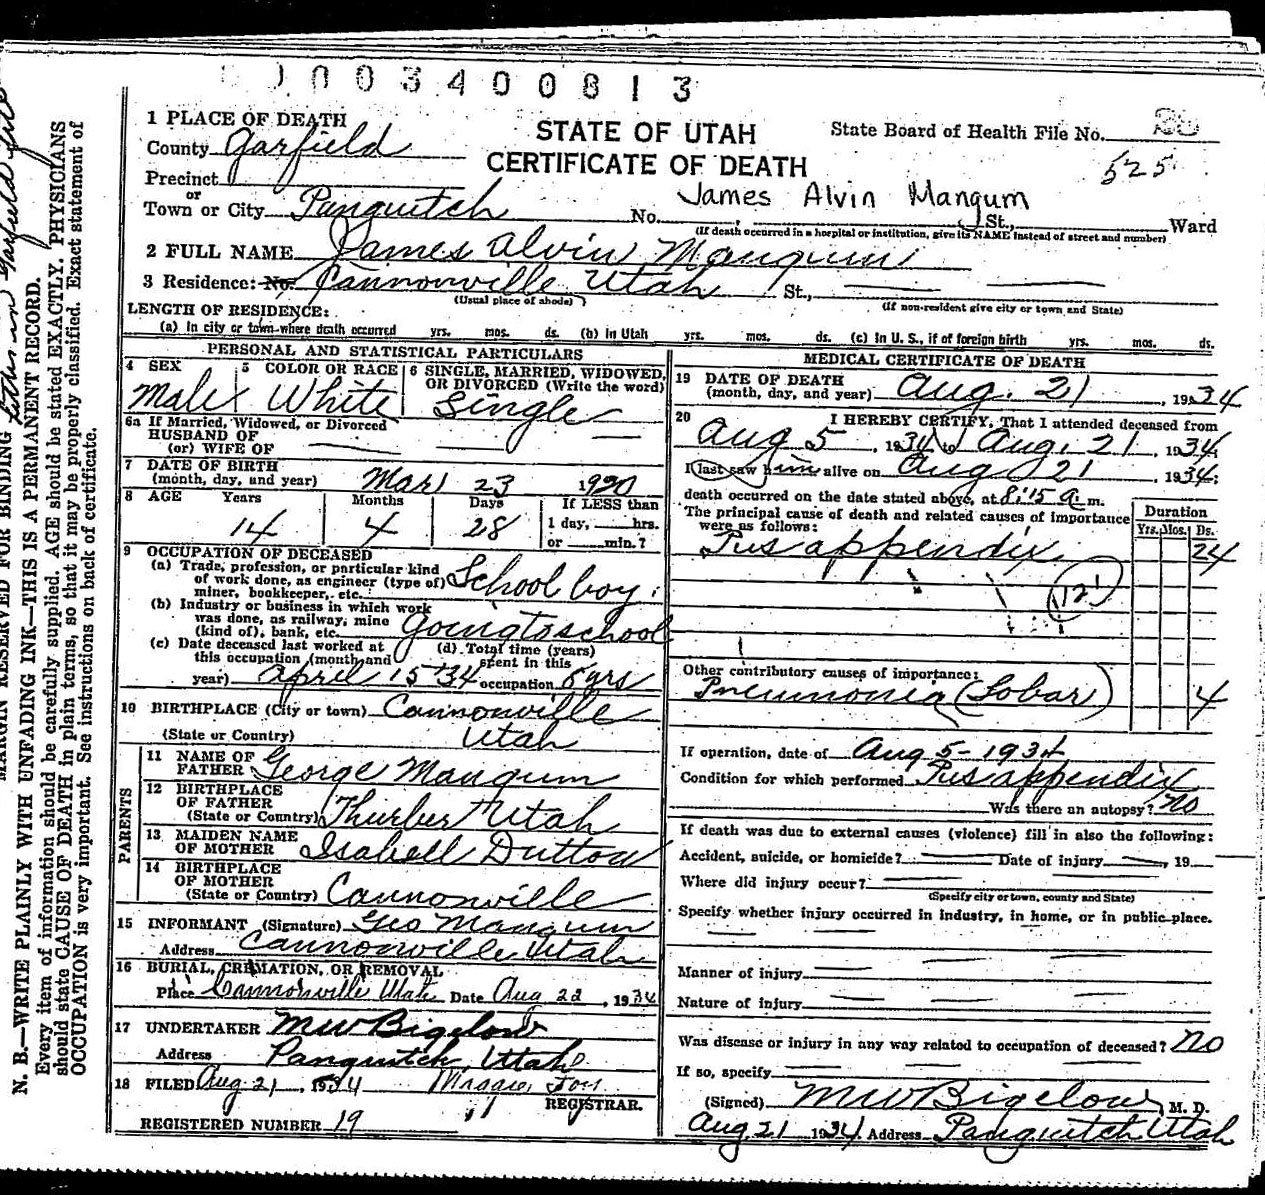 0003400813
1 PLACE OF DEATH
STATE OF UTAH
State Board of Health File No.
County Garfield
CERTIFICATE OF DEATH
525
Precinct
or
James Alvin Mangum
Town or City Panguitch No. St., Ward
(If death occurred in a hospital or institution, give its NAME instead of street and number)
2 FULL NAME James Alvin Mangum
3 Residence: No. Cannonville Utah St.,
(Usual place of abode) (If non-resident give city or town and State)
LENGTH OF RESIDENCE:
(a) In city or town where death occurred yrs. mos. ds. (b) in Utah yrs. mos. ds. (c) In U. S., if of foreign birth yrs. mos. ds.
PERSONAL AND STATISTICAL PARTICULARS
4 SEX
Male
5 COLOR OR RACE
White
6 SINGLE, MARRIED, WIDOWED, OR DIVORCED (Write the word)
Single
6a If Married, Widowed, or Divorced
HUSBAND OF
(or) WIFE OF
7 DATE OF BIRTH
(month, day, and year) Mar 23 1920
8 AGE Years Months Days If LESS than
14 4 28 1 day, hrs.
or min.?
9 OCCUPATION OF DECEASED
(a) Trade, profession, or particular kind
of work done, as engineer (type of)
miner, bookkeeper, etc. School boy
(b) Industry or business in which work
was done, as railway, mine
(kind of), bank, etc. Going to school
(c) Date deceased last worked at
this occupation (month and
year) April 15 34
(d) Total time (years)
spent in this
occupation 8 yrs
10 BIRTHPLACE (City or town) Cannonville
(State or Country) Utah
PARENTS
11 NAME OF
FATHER George Mangum
12 BIRTHPLACE
OF FATHER
(State or Country) Thurber Utah
13 MAIDEN NAME
OF MOTHER Isabell Dutton
14 BIRTHPLACE
OF MOTHER
(State or Country) Cannonville
15 INFORMANT (Signature) Geo Mangum
Address Cannonville Utah
16 BURIAL, CREMATION, OR REMOVAL
Place Cannonville Utah Date Aug 22, 1934
17 UNDERTAKER M W Bigelow
Address Panguitch, Utah
18 FILED Aug 21 1934 Maggie
REGISTRAR.
REGISTERED NUMBER 19
MEDICAL CERTIFICATE OF DEATH
19 DATE OF DEATH
(month, day, and year) Aug. 21, 1934
20 I HEREBY CERTIFY, That I attended deceased from
Aug 5, 1934 to Aug. 21, 1934
I last saw him alive on Aug 21, 1934;
death occurred on the date stated above, at 8:15 a m.
The principal cause of death and related causes of importance
were as follows:
Duration
Yrs. Mos. Ds.
Pus appendix 24
121
Other contributory causes of importance:
Pneumonia (Lobar) 4
If operation, date of Aug 5 - 1934
Condition for which performed Pus appendix
Was there an autopsy? no
If death was due to external causes (violence) fill in also the following:
Accident, suicide, or homicide? Date of injury , 19
Where did injury occur?
(Specify city or town, county and State)
Specify whether injury occurred in industry, in home, or in public place.
Manner of injury
Nature of injury
Was disease or injury in any way related to occupation of deceased? No
If so, specify
(Signed) M W Bigelow, M. D.
Aug 21 1934 Address Panguitch Utah
MARGIN RESERVED FOR BINDING
N. B.—WRITE PLAINLY WITH UNFADING INK—THIS IS A PERMANENT RECORD.
Every item of information should be carefully supplied. AGE should be stated EXACTLY. PHYSICIANS
should state CAUSE OF DEATH in plain terms, so that it may be properly classified. Exact statement of
OCCUPATION is very important. See instructions on back of certificate.